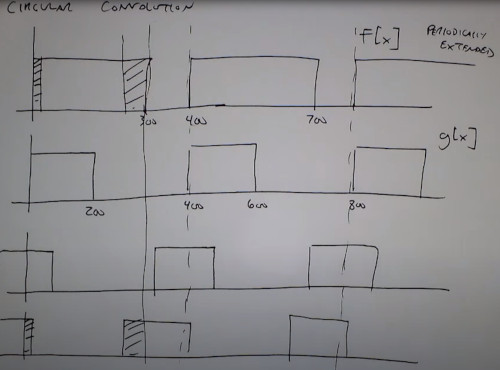 CIRCULAR CONVOLUTION
F[x] PERIODICALLY EXTENDED
300 400 700
g[x]
200 400 600 800